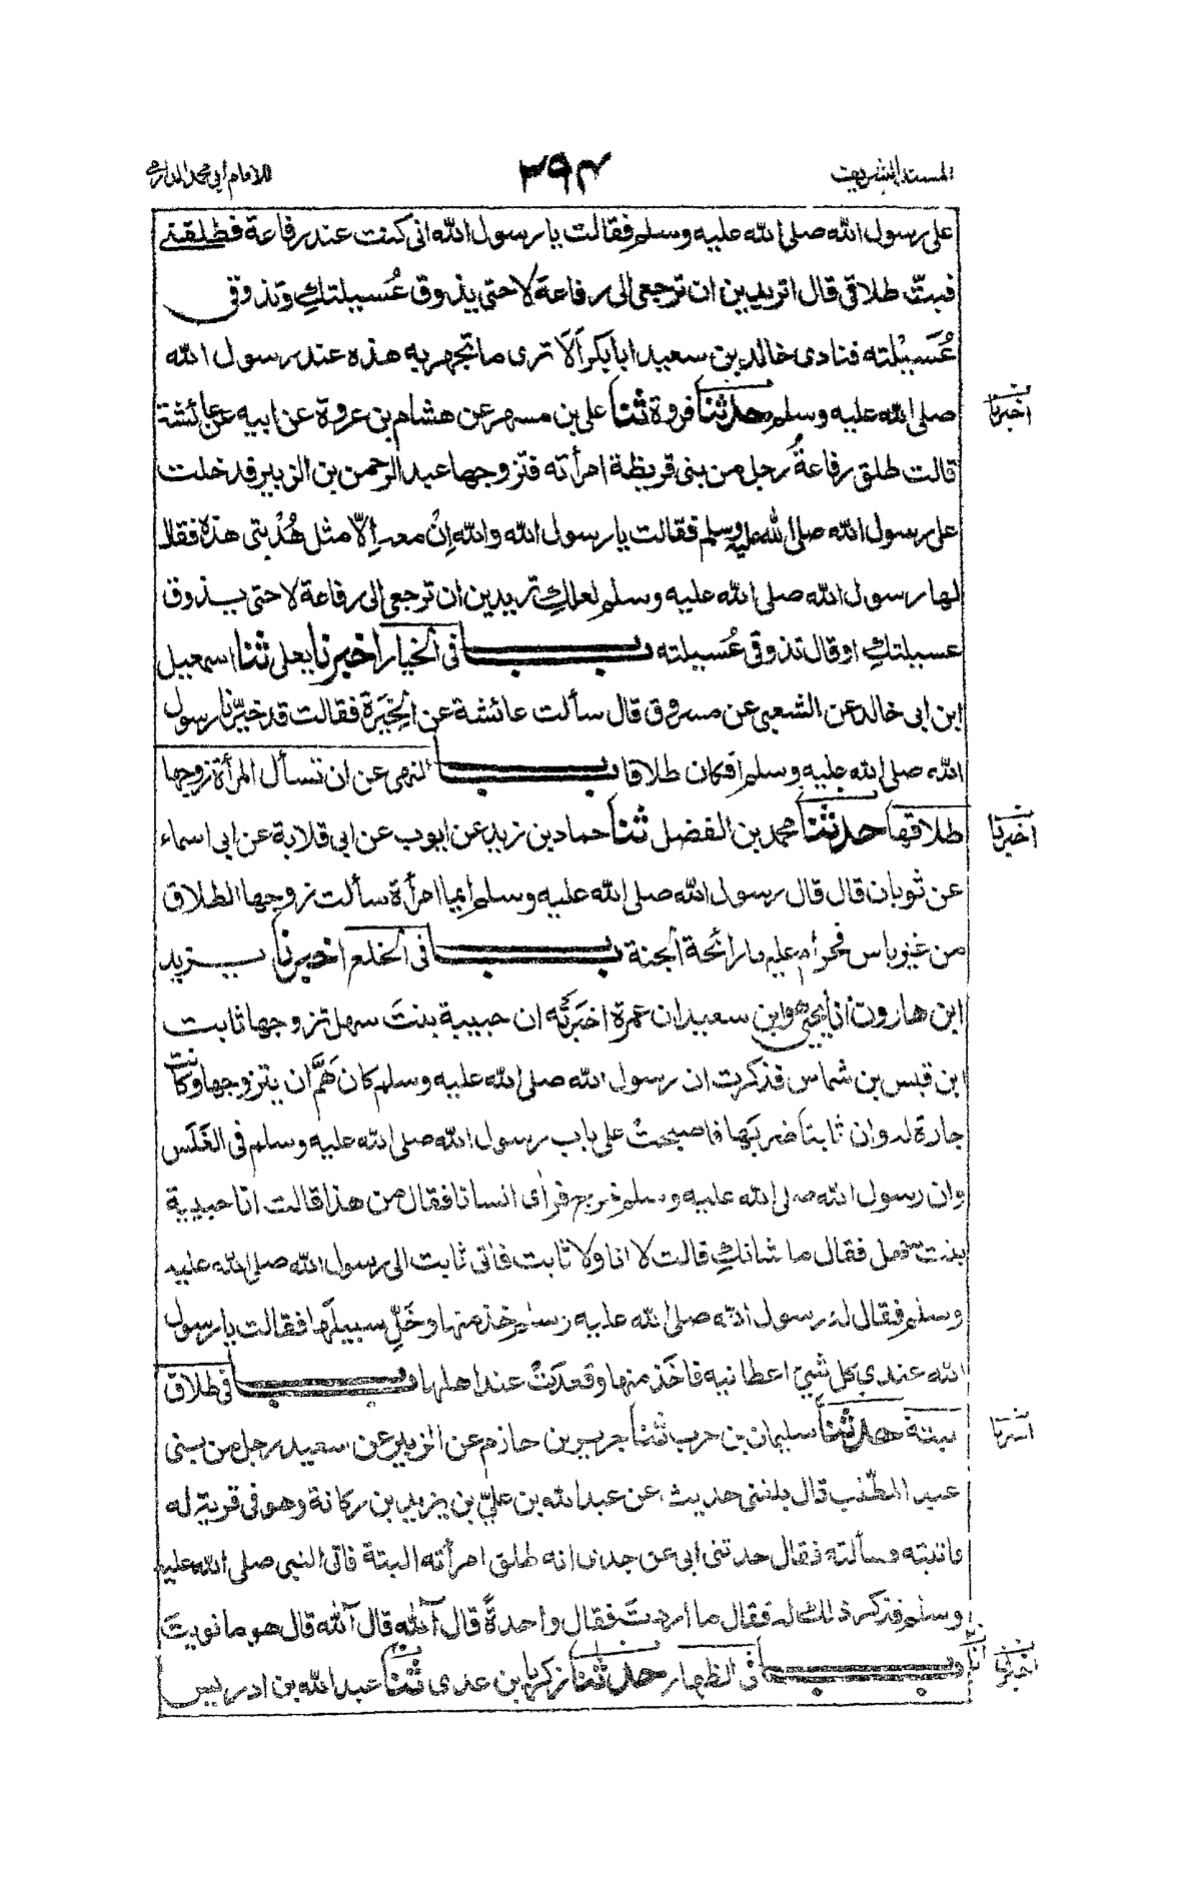 المسند الشريف
٢٩٤
للامام ابي محمد الدارمي
على رسول الله صلى الله عليه وسلم فقالت يا رسول الله انى كنت عند رفاعة فطلقنى
فبتّ طلاقى قال اتريدين ان ترجعى الى رفاعة لا حتى يذوق عُسيلتكِ وتذوقى
عُسَيْلته فنادى خالد بن سعيد ابا بكر اَلَا ترى ما تجهر به هذه عند رسول الله
صلى الله عليه وسلم حدثنا فروة ثنا على بن مسهر عن هشام بن عروة عن ابيه عن عائشة
اخبرنا
قالت طلق رفاعةُ رجل من بنى قريظة امرأته فتزوجها عبد الرحمن بن الزبير فدخلت
على رسول الله صلى الله عليه وسلم فقالت يا رسول الله والله اِنْ معه اِلّا مثل هُدْبتى هذه فقال
لها رسول الله صلى الله عليه وسلم لعلكِ تريدين ان ترجعى الى رفاعة لا حتى يذوق
عسيلتكِ او قال تذوقى عُسيلته باب فى الخيار اخبرنا يعلى ثنا اسمعيل
ابن ابى خالد عن الشعبى عن مسروق قال سألت عائشة عن الخِيَرَة فقالت قد خيّرنا رسول
الله صلى الله عليه وسلم افكان طلاقا باب النهى عن ان تسأل المرأة زوجها
طلاقها حدثنا محمد بن الفضل ثنا حماد بن زيد عن ايوب عن ابى قلابة عن ابى اسماء
اخبرنا
عن ثوبان قال قال رسول الله صلى الله عليه وسلم ايما امرأة سألت زوجها الطلاق
من غير باس فحرام عليها رائحة الجنة باب فى الخلع اخبرنا يزيد
ابن هارون أنا يحيى هو ابن سعيد ان عمرة اخبَرَتْه ان حبيبة بنتَ سهل تزوجها ثابت
ابن قيس بن شماس فذكرت ان رسول الله صلى الله عليه وسلم كان هَمَّ ان يتزوجها وكانت
جارة له وان ثابتاً ضربَها فاصبحتْ على باب رسول الله صلى الله عليه وسلم فى الغَلَس
وان رسول الله صلى الله عليه وسلم خرج فرأى انسانا فقال من هذا قالت انا حبيبة
بنت سهل فقال ما شانكِ قالت لا انا ولا ثابت فاتى ثابت الى رسول الله صلى الله عليه
وسلم فقال له رسول الله صلى الله عليه وسلم خذ منها وخَلِّ سبيلَها فقالت يا رسول
الله عندى كل شىئ اعطانيه فاخذ منها وقعدَتْ عند اهلها باب فى طلاق
بتة حدثنا سليمان بن حرب ثنا جرير بن حازم عن الزبير عن سعيد رجل من بنى
اخبرنا
عبد المطّلب قال بلغنى حديث عن عبد الله بن علىّ بن يزيد بن ركانة وهو فى قرية له
فاتيته وسألته فقال حدثنى ابى عن جدى انه طلق امرأته البتة فاتى النبى صلى الله عليه
وسلم فذكر ذلك له فقال ما اردتَ فقال واحدةً قال آلله قال آلله قال هو ما نويتَ
باب فى الظهار حدثنا زكريا بن عدى ثنا عبد الله بن ادريس
اخبرنا
أنا